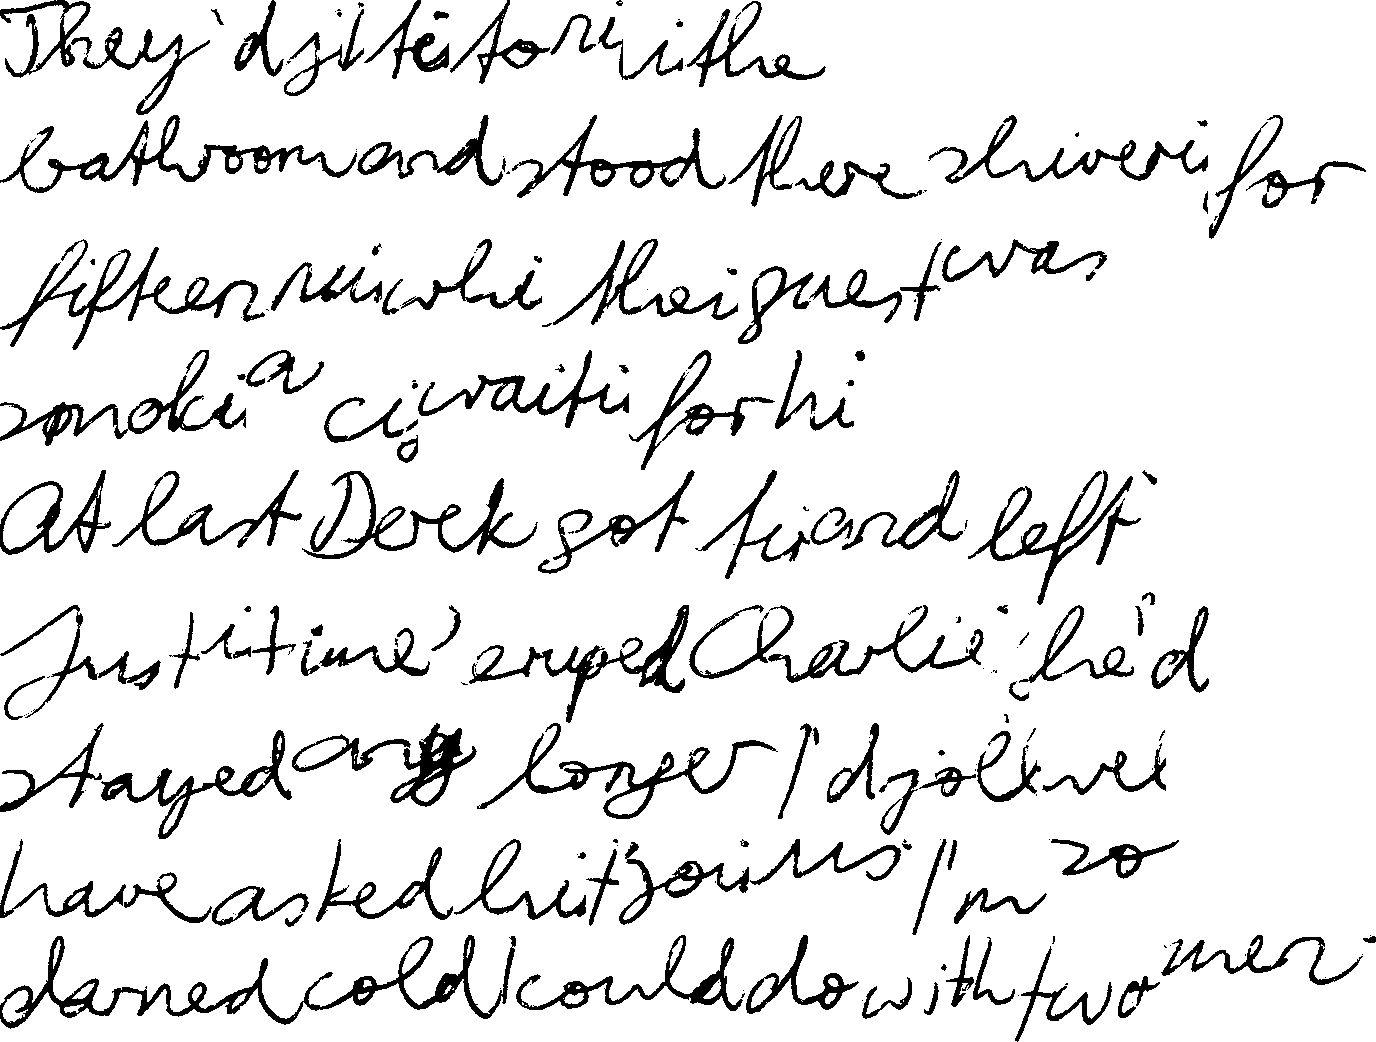 They'd jilted to ri in the
bathroom and stood there shiveri for
fifteen min whi their guest was
smoki a cig waiti for hi
At last Derek got ti and left
Just i time' eruped Charlie 'he'd
stayed any longer I'd joll well
have asked hi t' join us I'm so
darned cold I could do with two men.